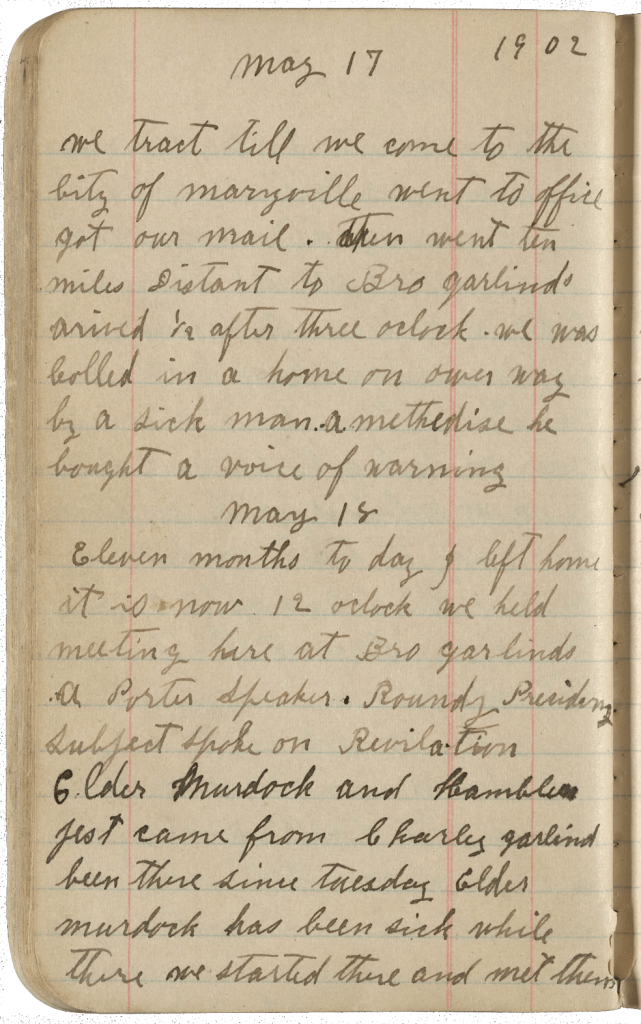 1902
May 17
we tract till we come to the
City of maryville went to office
got our mail. Then went ten
miles Distant to Bro garlinds
arived 1/2 after three oclock. we was
Colled in a home on ower way
by a sick man. a methedise he
bought a voice of warning
May 18
Eleven months to day I left home
it is now 12 oclock we held
meeting here at Bro garlinds
A Porter Speaker. Roundy Presiding
Subject spoke on Revilation
Elder Murdock and Hamblen
jest came from Charley garlind
been there since tuesday Elder
murdock has been sick while
there we started there and met them